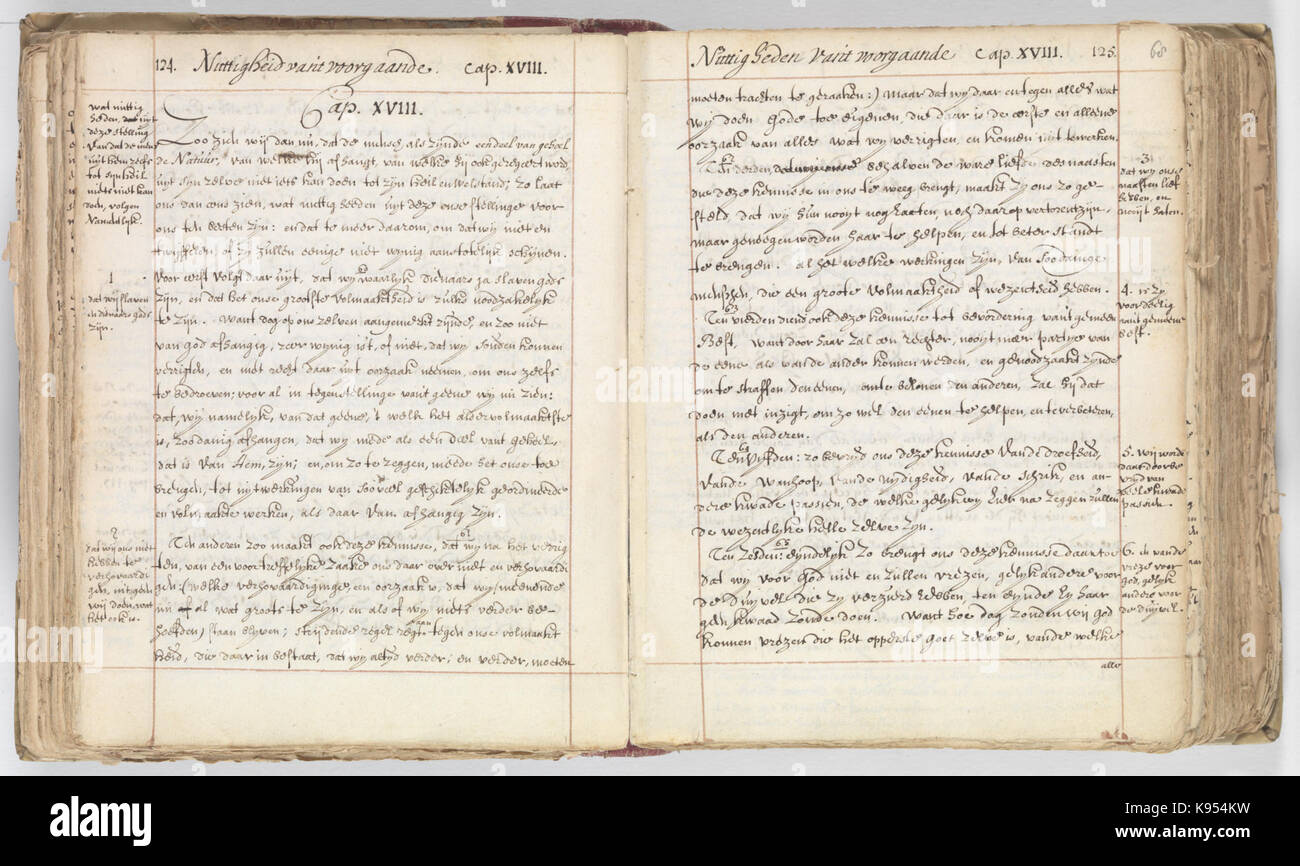 124. Nuttigheid van't voorgaande. Cap. XVIII.
Cap. XVIII.
wat nuttig
heden, uijt
deze stelling
van dat de men
uijt hem zelfs
tot syn heil
niets niet kan
doen, volgen
Namelijk.
Zoo zien wij dan nu, dat de mensch, als zijnde een deel van geheel
de Natuur, van welke hij afhangt, van welke hij ook geregeert word,
uijt syn zelve niet iets kan doen tot zijn heil en welstand; zo laat
ons dan ons zien, wat nuttigheeden uijt deze onse stellinge voor
ons te beeten zijn: en dat te meer daarom, om dat wij niet en
twijffelen, of zij zullen eenige niet wijnig aanstotelijk schijnen.
1
dat wij slaven
en dienaars gods
zijn.
Voor eerst volgt daar uijt, dat wij waarlijk dienaars ja slaven gods
zijn, en dat het onse grootste volmaaktheid is zulks noodzakelijk
te zijn. Want dog op ons zelven aangemerkt zijnde, en zoo niet
van god afhangig, zeer wijnig is't, of niet, dat wij souden konnen
verrigten, en met regt daar uijt oorzaak neemen, om ons zelfs
te bedroeven; voor al in tegenstellinge van't geene wij nu zien:
dat, wij namelijk, van dat geene, 't welk het aldervolmaaktste
is, zoodanig afhangen, dat wij mede als een deel van't geheel,
dat is van hem, zijn; en, om zo te zeggen, meede het onse toe
brengen, tot uijtwerkingen van zoo veel geschiktelijk geordineerde
en volmaakte werken, als daar van afhangig zijn.
2
dat wij ons niet
hebben te
verhovaardi
gen, uijt geen
wij doen, wat
het ook is.
Ten anderen zoo maakt ook deze kennisse, dat wij na het verrig
ten, van een voortreffelijke zaake ons daar over niet en verhovaardi
gen: (welke verhovaardiginge een oorzaak is, dat wij, meenende
nu al wat groots te zijn, en als of wij niets verder be=
hoefden, staan blyven; strijdende regel regt aan tegen onse volmaakt
heid, die daar in bestaat, dat wij altijd verder, en verder, moeten
Nuttigheden van't voorgaande Cap. XVIII. 125.
68
moeten tragten te geraaken:) Maar dat wij daar en tegen alles wat
wij doen Gode toe eigenen, die daar is de eerste en alleene
oorzaak van alles wat wij verrigten, en komen uijt te werken.
3
dat wij onse
naasten lief
hebben, en
nooijt haten.
Ten derden, behalven de ware liefde des naasten
die deze kennisse in ons te weeg brengt, maakt zij ons zo ge=
steld, dat wij hun nooijt nog haaten, noch daar op vertorent zijn,
maar geneegen worden haar te helpen, en tot beter standt
te brengen. Al het welke werkingen zijn, van zoodanige
menschen, die een groote volmaaktheid of wezentheid hebben.
4. is zy
voordeelig
van't gemeene
best.
Ten vierden diend ook deze kennisse tot bevordering van't gemeen
Best, want door haar zal een rechter, nooijt meer partye van
de eene als van de ander konnen werden, en genoodzaakt zijnde
om te straffen den eenen, om te belonen den anderen, zal hij dat
doen met inzigt, om zo wel den eenen te helpen, en te verbeteren,
als den anderen.
5. wij worden
daar door be
vrijd van
veele kwade
passien.
Ten Vijfden: zo bevrijd ons deze kennisse van de droefheid,
van de wanhoop, van de nijdigheid, van de schrik, en an=
dere kwade passien, de welke gelijk wij hier na zeggen zullen
de wezentlyke helle zelve zijn.
6. en van de
vreze voor
god, gelijk
andere voor
de duijvel.
Ten Zesden: eijndelijk zo brengt ons deze kennisse daar toe
dat wij voor God niet en zullen vrezen, gelijk andere voor
de duijvel die zij verzierd hebben, ten eijnde hij haar
geen kwaad zoude doen. Want hoe dog zouden wij god
konnen vrezen die het opperste goet zelve is, van de welke
alle
alamy
alamy stock photo
K954KW
www.alamy.com